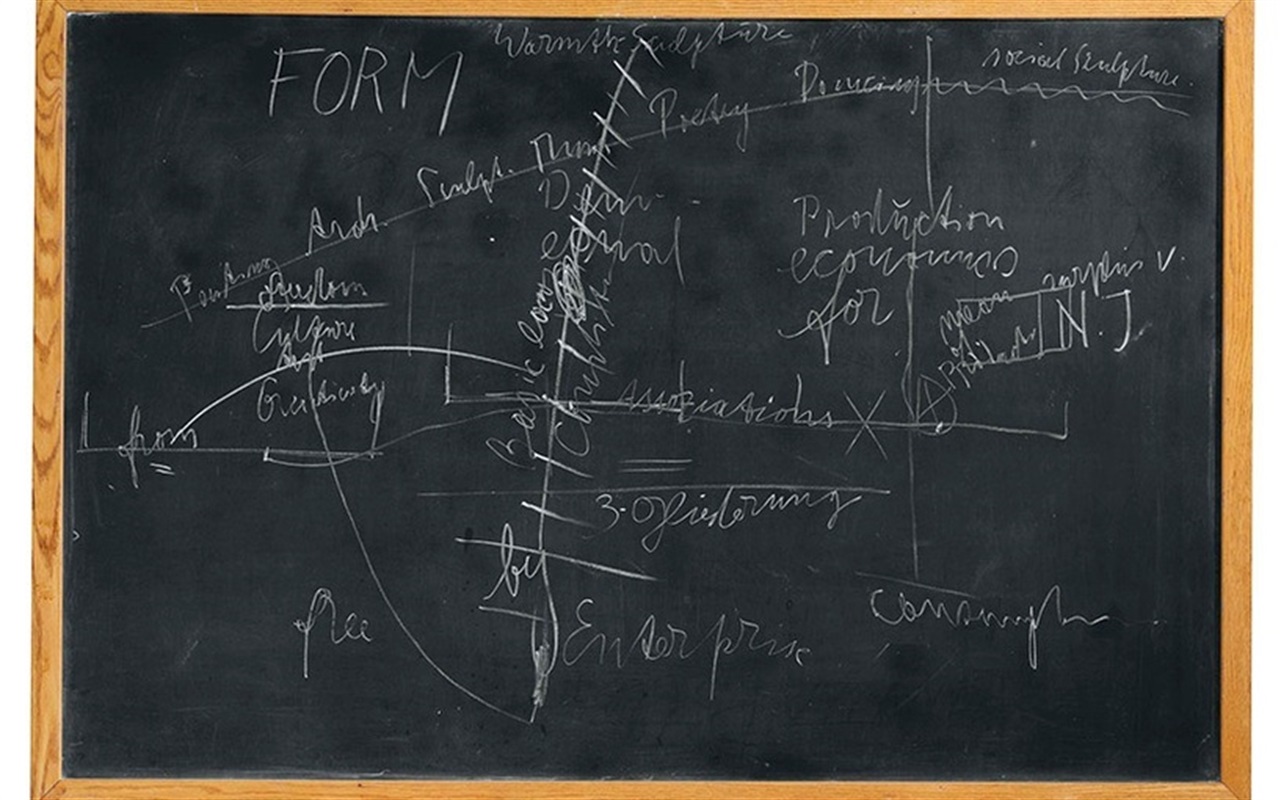 FORM
Warmth Sculpture
social Sculpture
Painting Arch. Sculpt. Music Poetry Dancing
Dem-
equal
Freedom
Culture
Creativity
Production
economics
for
surplus v.
N.J
Basic law
from
Associations
3-Gliederung
by
free
Enterprise
consumption